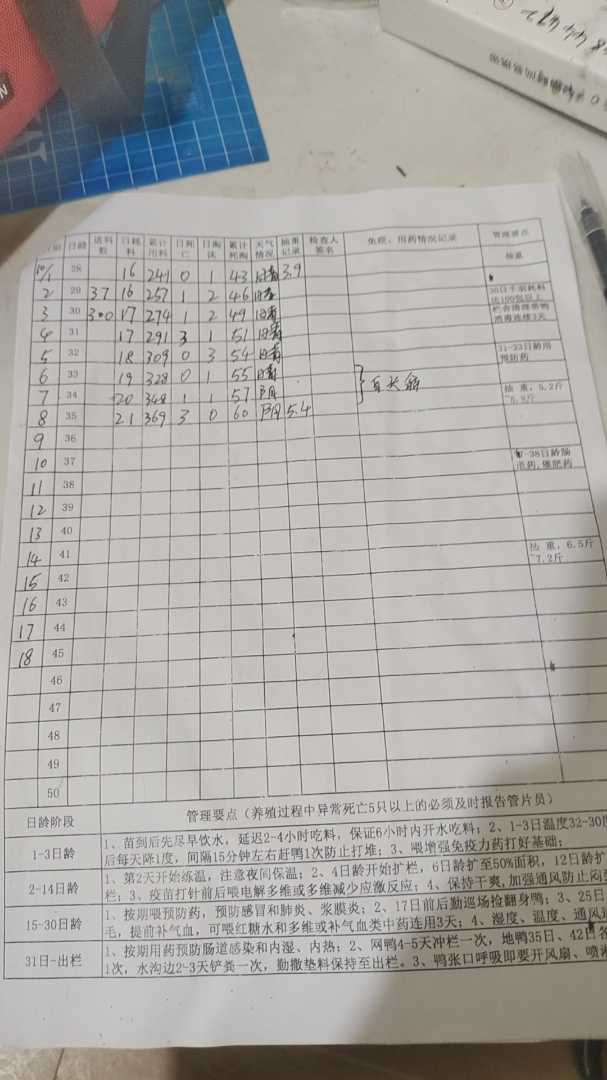 日龄 送料数 日耗料 累计用料 日死亡 日淘汰 累计死淘 天气情况 抽重记录 检查人签名 免疫、用药情况记录 管理要点
10/1 28 16 241 0 1 43 3.9 抽重
2 29 37 16 257 1 2 46 30日千羽耗料达100包以上
3 30 300 17 274 1 2 49 栏舍清理带鸭消毒连续3天
4 31 17 291 3 1 51
5 32 18 309 0 3 54 31-33日龄用预防药
6 33 19 328 0 1 55
7 34 20 348 1 1 57 阴 抽重:5.2斤
8 35 21 369 3 0 60 阴 5.4
9 36
10 37 -38日龄肠道药,催肥药
11 38
12 39
13 40
14 41 抽重:6.5斤~7.2斤
15 42
16 43
17 44
18 45
46
47
48
49
50
日龄阶段 管理要点(养殖过程中异常死亡5只以上的必须及时报告管片员)
1-3日龄 1、苗到后先尽早饮水,延迟2-4小时吃料,保证6小时内开水吃料;2、1-3日温度32-30度
后每天降1度,间隔15分钟左右赶鸭1次防止打堆;3、喂增强免疫力药打好基础;
2-14日龄 1、第2天开始炼温,注意夜间保温;2、4日龄开始扩栏,6日龄扩至50%面积,12日龄扩
栏;3、疫苗打针前后喂电解多维或多维减少应激反应;4、保持干爽,加强通风防止闷
15-30日龄 1、按期喂预防药,预防感冒和肺炎、浆膜炎;2、17日前后勤巡场捡翻身鸭;3、25日
毛,提前补气血,可喂红糖水和多维或补气血类中药连用3天;4、湿度、温度、通风
31日-出栏 1、按期用药预防肠道感染和内湿、内热;2、网鸭4-5天冲栏一次,地鸭35日、42日各
1次,水沟边2-3天铲粪一次,勤撒垫料保持至出栏。3、鸭张口呼吸即要开风扇、喷淋